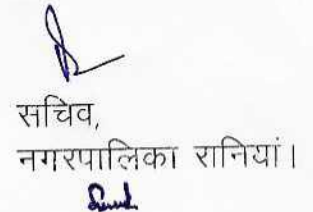 सचिव,
नगरपालिका रानियां।